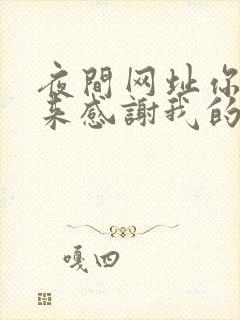 夜間网址你
来感謝我的
嘎四